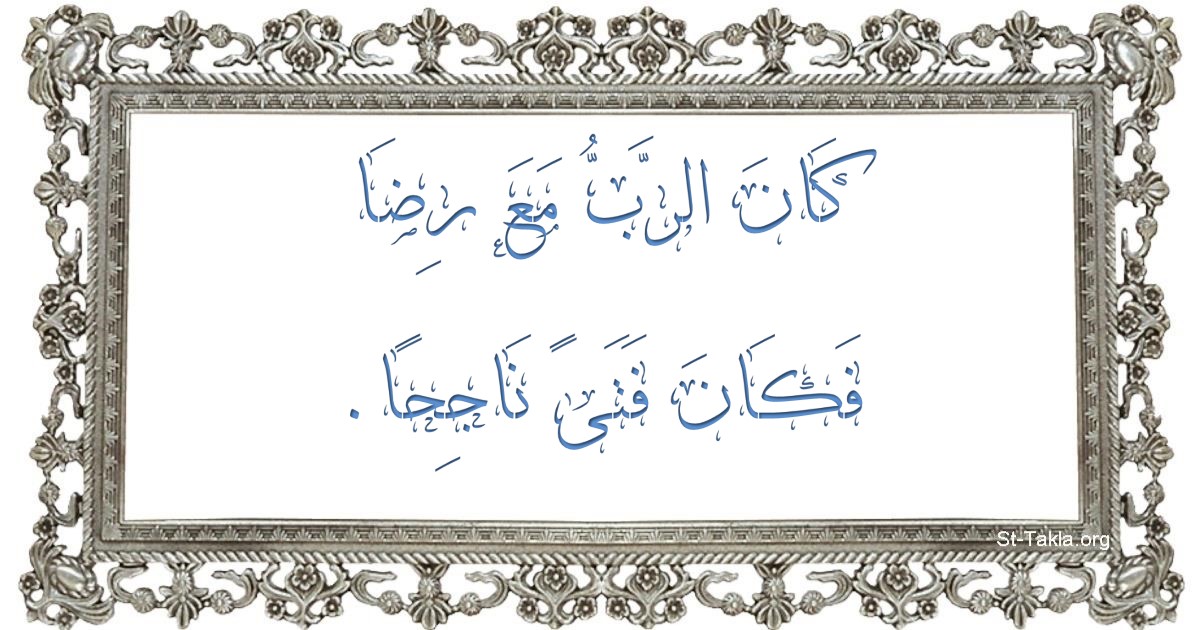 كَانَ الرَّبُّ مَعَ رِضَا
فَكَانَ فَتَىً نَاجِحًا .
St-Takla.org